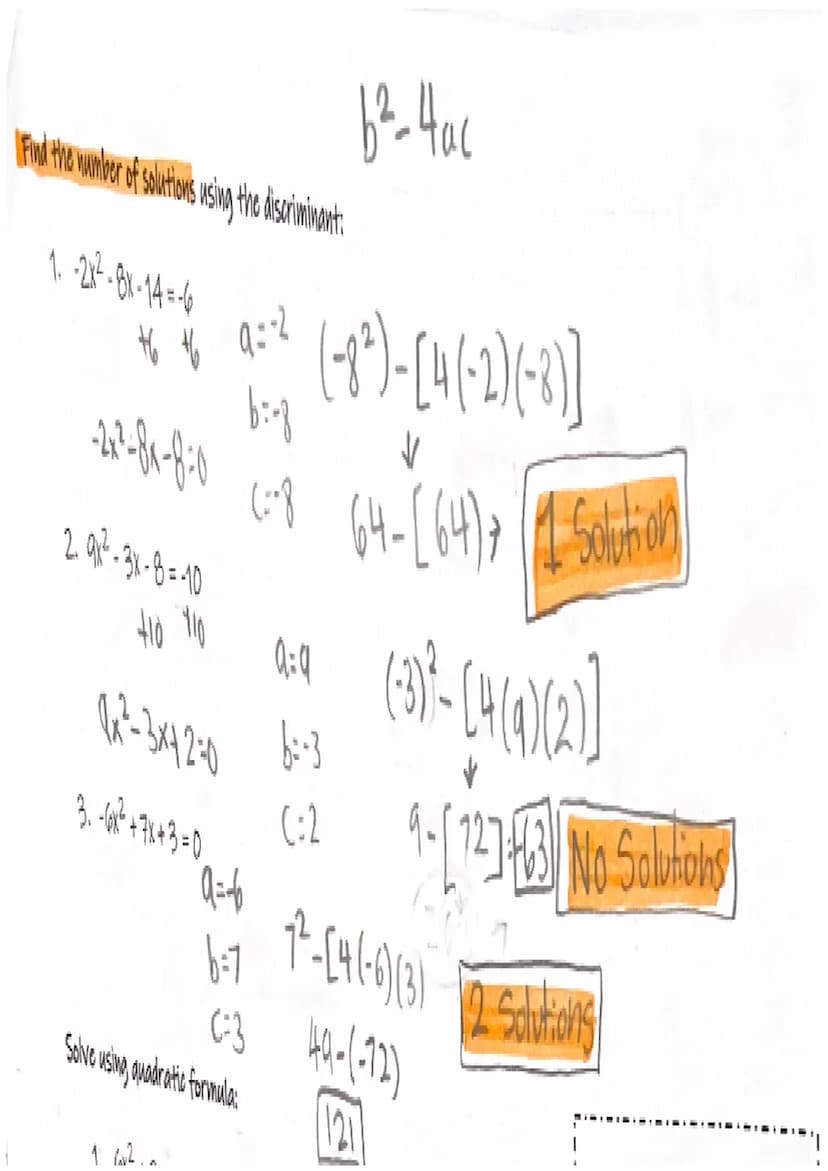 b² - 4ac
Find the number of solutions using the discriminant:
1. -2x² - 8x - 14 = -6
+6 +6
-2x² - 8x - 8 = 0
a = -2
b = -8
c = -8
(-8²) - [4(-2)(-8)]
↓
64 - [64) → 1 Solution
2. 9x² - 3x - 8 = -10
+10 +10
9x² - 3x + 2 = 0
a = 9
b = -3
c = 2
(-3)² - [4(9)(2)]
↓
9 - [72] = -63 No Solutions
3. -6x² + 7x + 3 = 0
a = -6
b = 7
c = 3
7² - [4(-6)(3)
49 - (-72)
121
2 Solutions
Solve using quadratic formula: